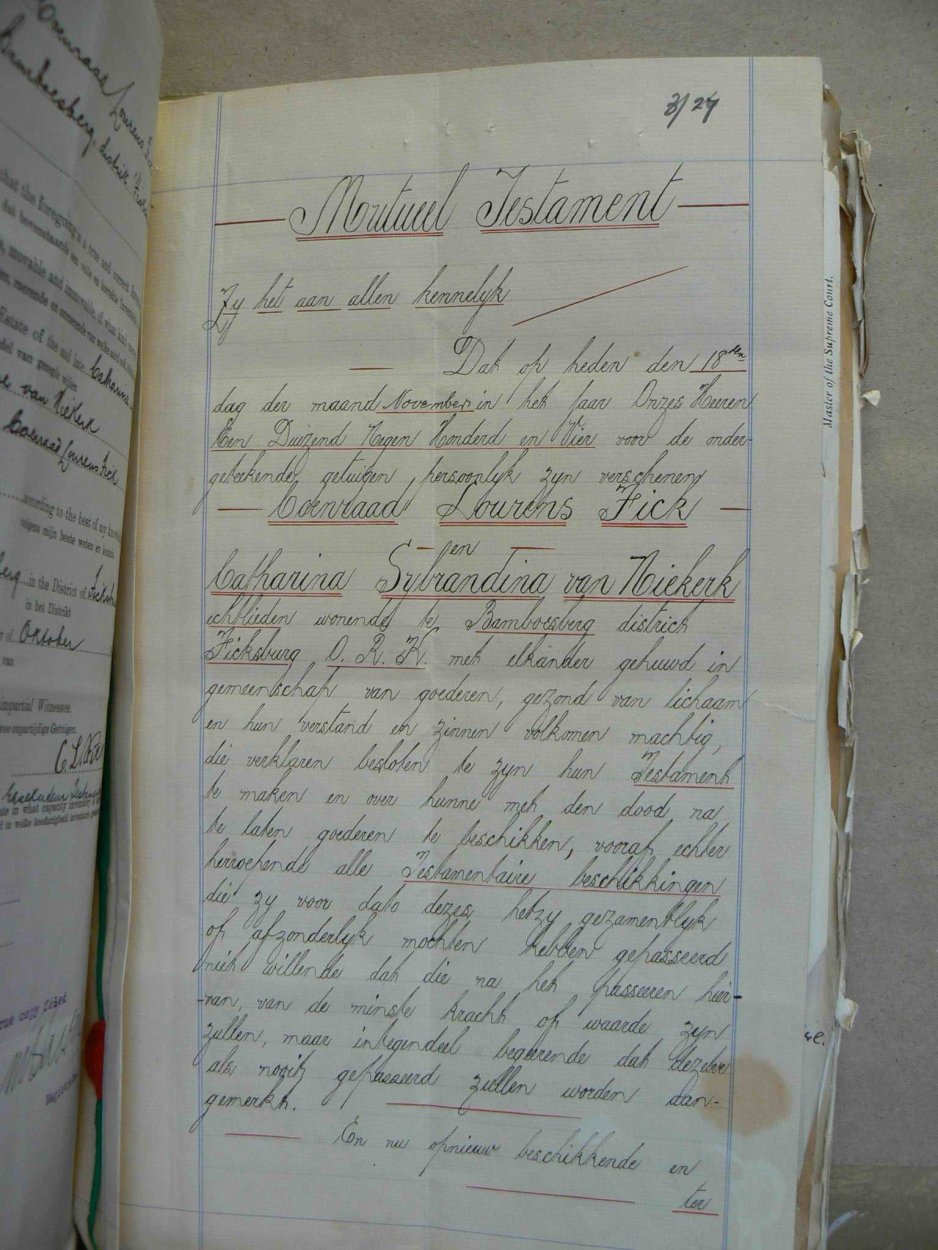 Coenraad Lourens
Bamboesberg, distrik
that the foregoing is a true and correct
movable and immovable, of what kind
Estate of the said late Catharina
van Niekerk
Coenraad Lourens Fick
according to the best of my
volgens mijn beste weten en
in the District of Ficksburg
in het Distrikt
of Oktober
van
Impartial Witnesses
onpartijdige Getuigen.
in what capacity
in welke hoedanigheid
true copy filed
3/27
Mutueel Testament
Zy het aan allen kennelyk
Dat op heden den 18den
dag der maand November in het Jaar Onzes Heeren
Een Duizend Negen Honderd en Vier voor de onder-
geteekende getuigen persoonlyk zyn verschenen
Coenraad Lourens Fick
en
Catharina Sybrandina van Niekerk
echtlieden wonende te Bamboesberg district
Ficksburg O. R. K. met elkander gehuwd in
gemeenschap van goederen, gezond van lichaam
en hun verstand en zinnen volkomen machtig,
die verklaren besloten te zyn hun Testament
te maken en over hunne met den dood na
te laten goederen te beschikken, vooraf echter
herroepende alle Testamentaire beschikkingen
die zy voor dato dezes hetzy gezamentlyk
of afzonderlyk mochten hebben gepasseerd
niet willende dat die na het passeeren hier-
-van, van de minste kracht of waarde zyn
zullen, maar integendeel begeerende dat dezelve
als nooit gepasseerd zullen worden aan-
gemerkt.
En nu opnieuw beschikkende en
ter
Master of the Supreme Court.